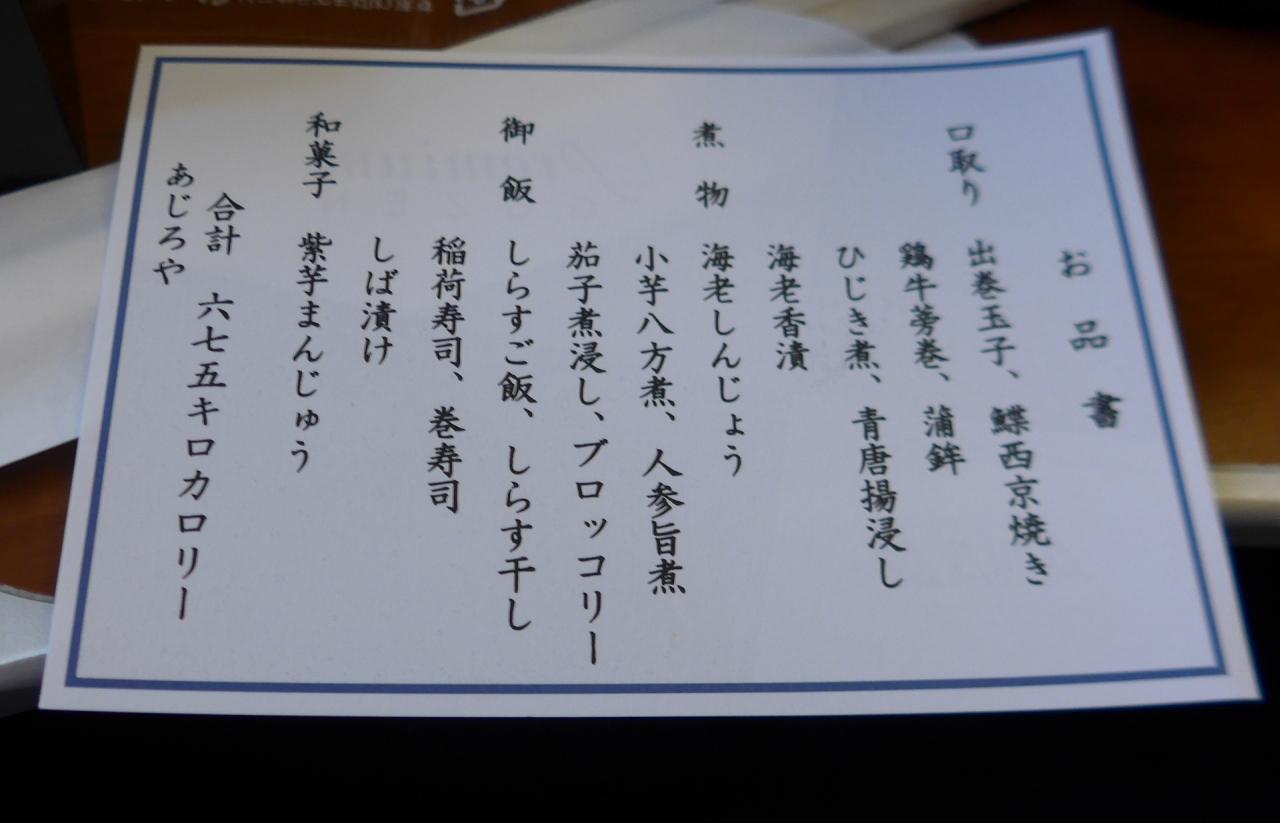 お品書
口取り 出巻玉子、鰈西京焼き
鶏牛蒡巻、蒲鉾
ひじき煮、青唐揚浸し
海老香漬
煮物 海老しんじょう
小芋八方煮、人参旨煮
茄子煮浸し、ブロッコリー
御飯 しらすご飯、しらす干し
稲荷寿司、巻寿司
しば漬け
和菓子 紫芋まんじゅう
合計 六七五キロカロリー
あじろや